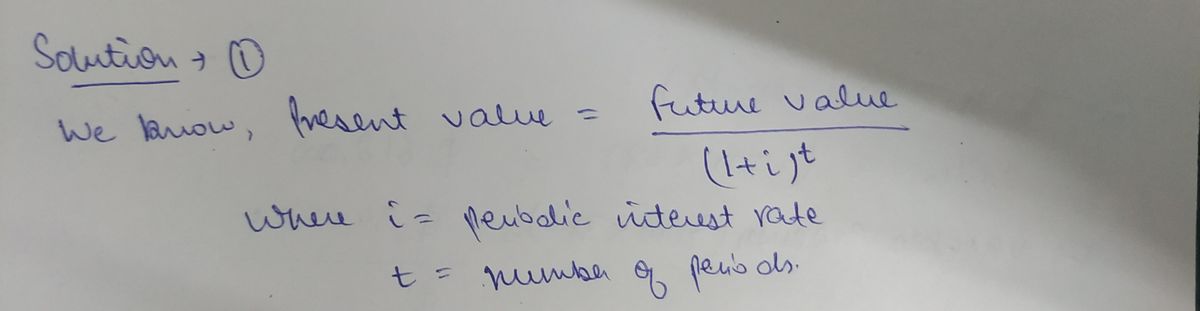 Solution → ①
We know, Present value = Future value / (1+i)^t
where i = periodic interest rate
t = number of periods.